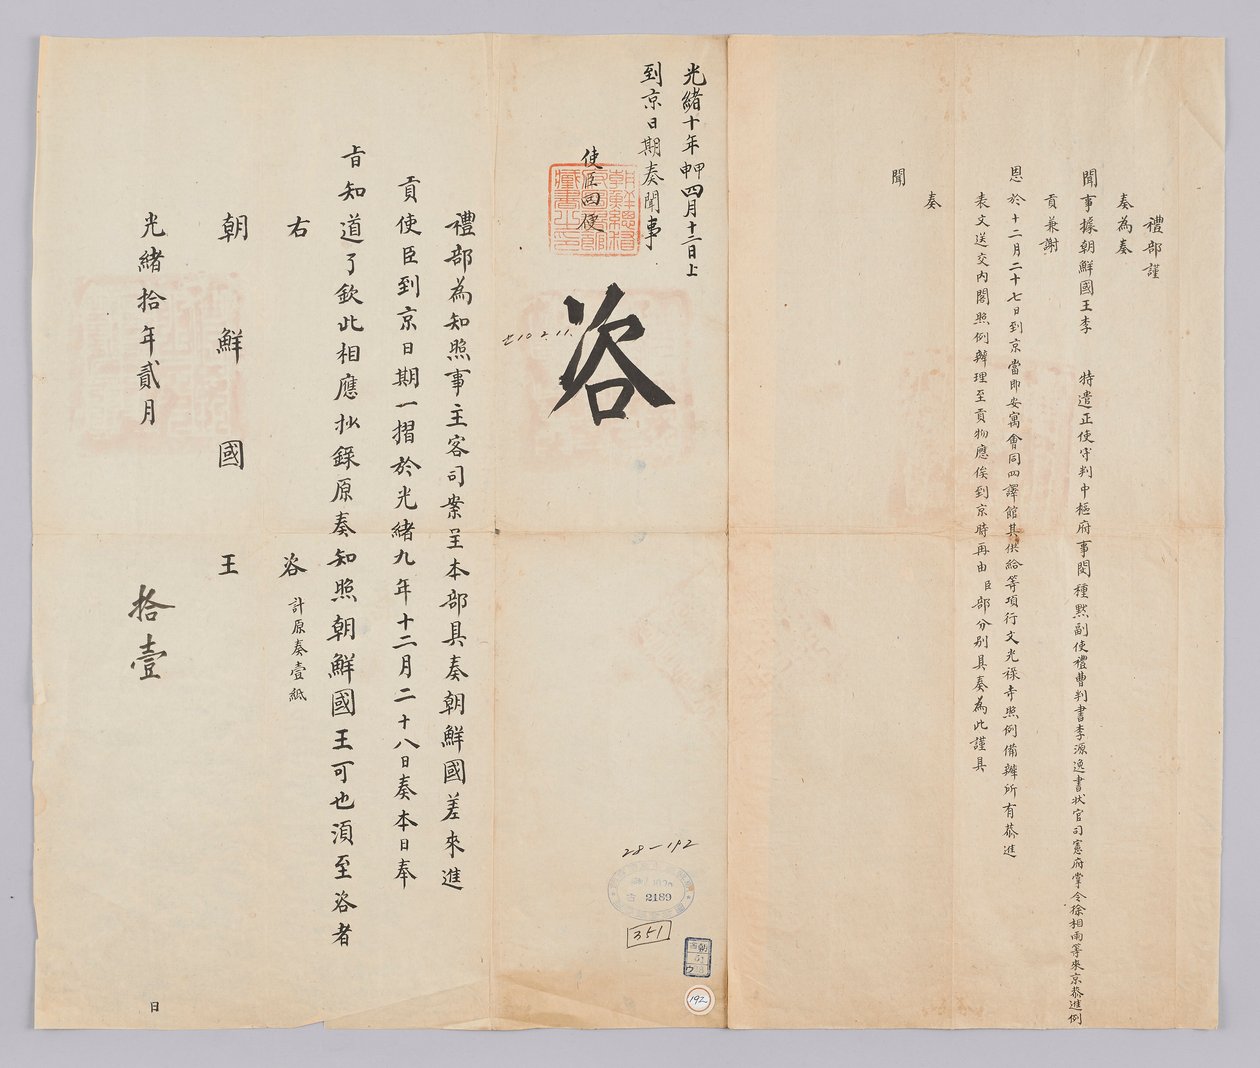 禮部謹
奏為奏
聞事據朝鮮國王李 特遣正使守判中樞府事閔種默副使禮曹判書李源逸書狀官司憲府掌令徐相雨等來京恭進例
貢兼謝
恩於十二月二十七日到京當即安寓會同四譯館其供給等項行文光祿寺照例備辦所有恭進
表文送交內閣照例辦理至貢物應俟到京時再由臣部分別具奏為此謹具
奏
聞
光緒十年甲申四月十二日上
到京日期奏聞事
使臣回便
咨
28-192
2189
351
192
禮部為知照事主客司案呈本部具奏朝鮮國差來進
貢使臣到京日期一摺於光緒九年十二月二十八日奏本日奉
旨知道了欽此相應抄錄原奏知照朝鮮國王可也須至咨者
右 咨 計原奏壹紙
朝鮮國王
光緒拾年貳月 日
拾壹